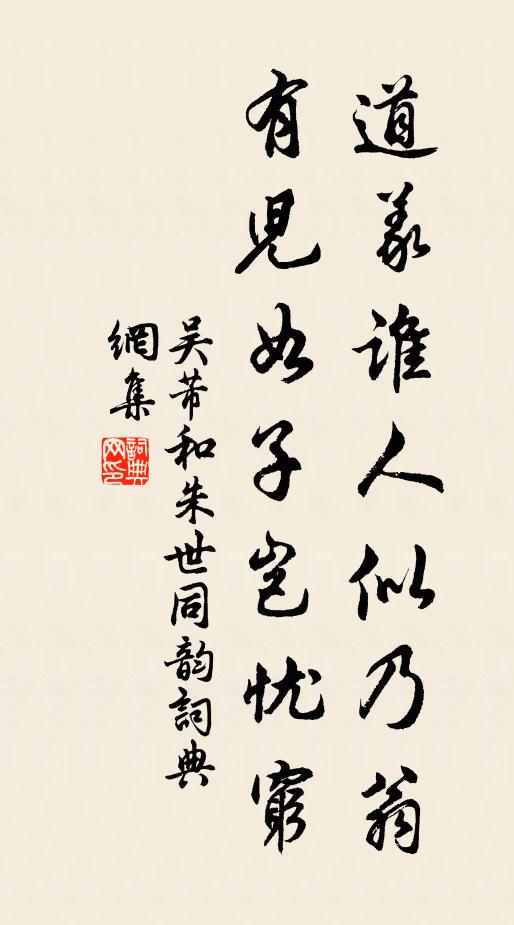 道義誰人似乃翁
有児如子豈忧窮
吴芾和朱世同韵詞典
網集
詞典網印